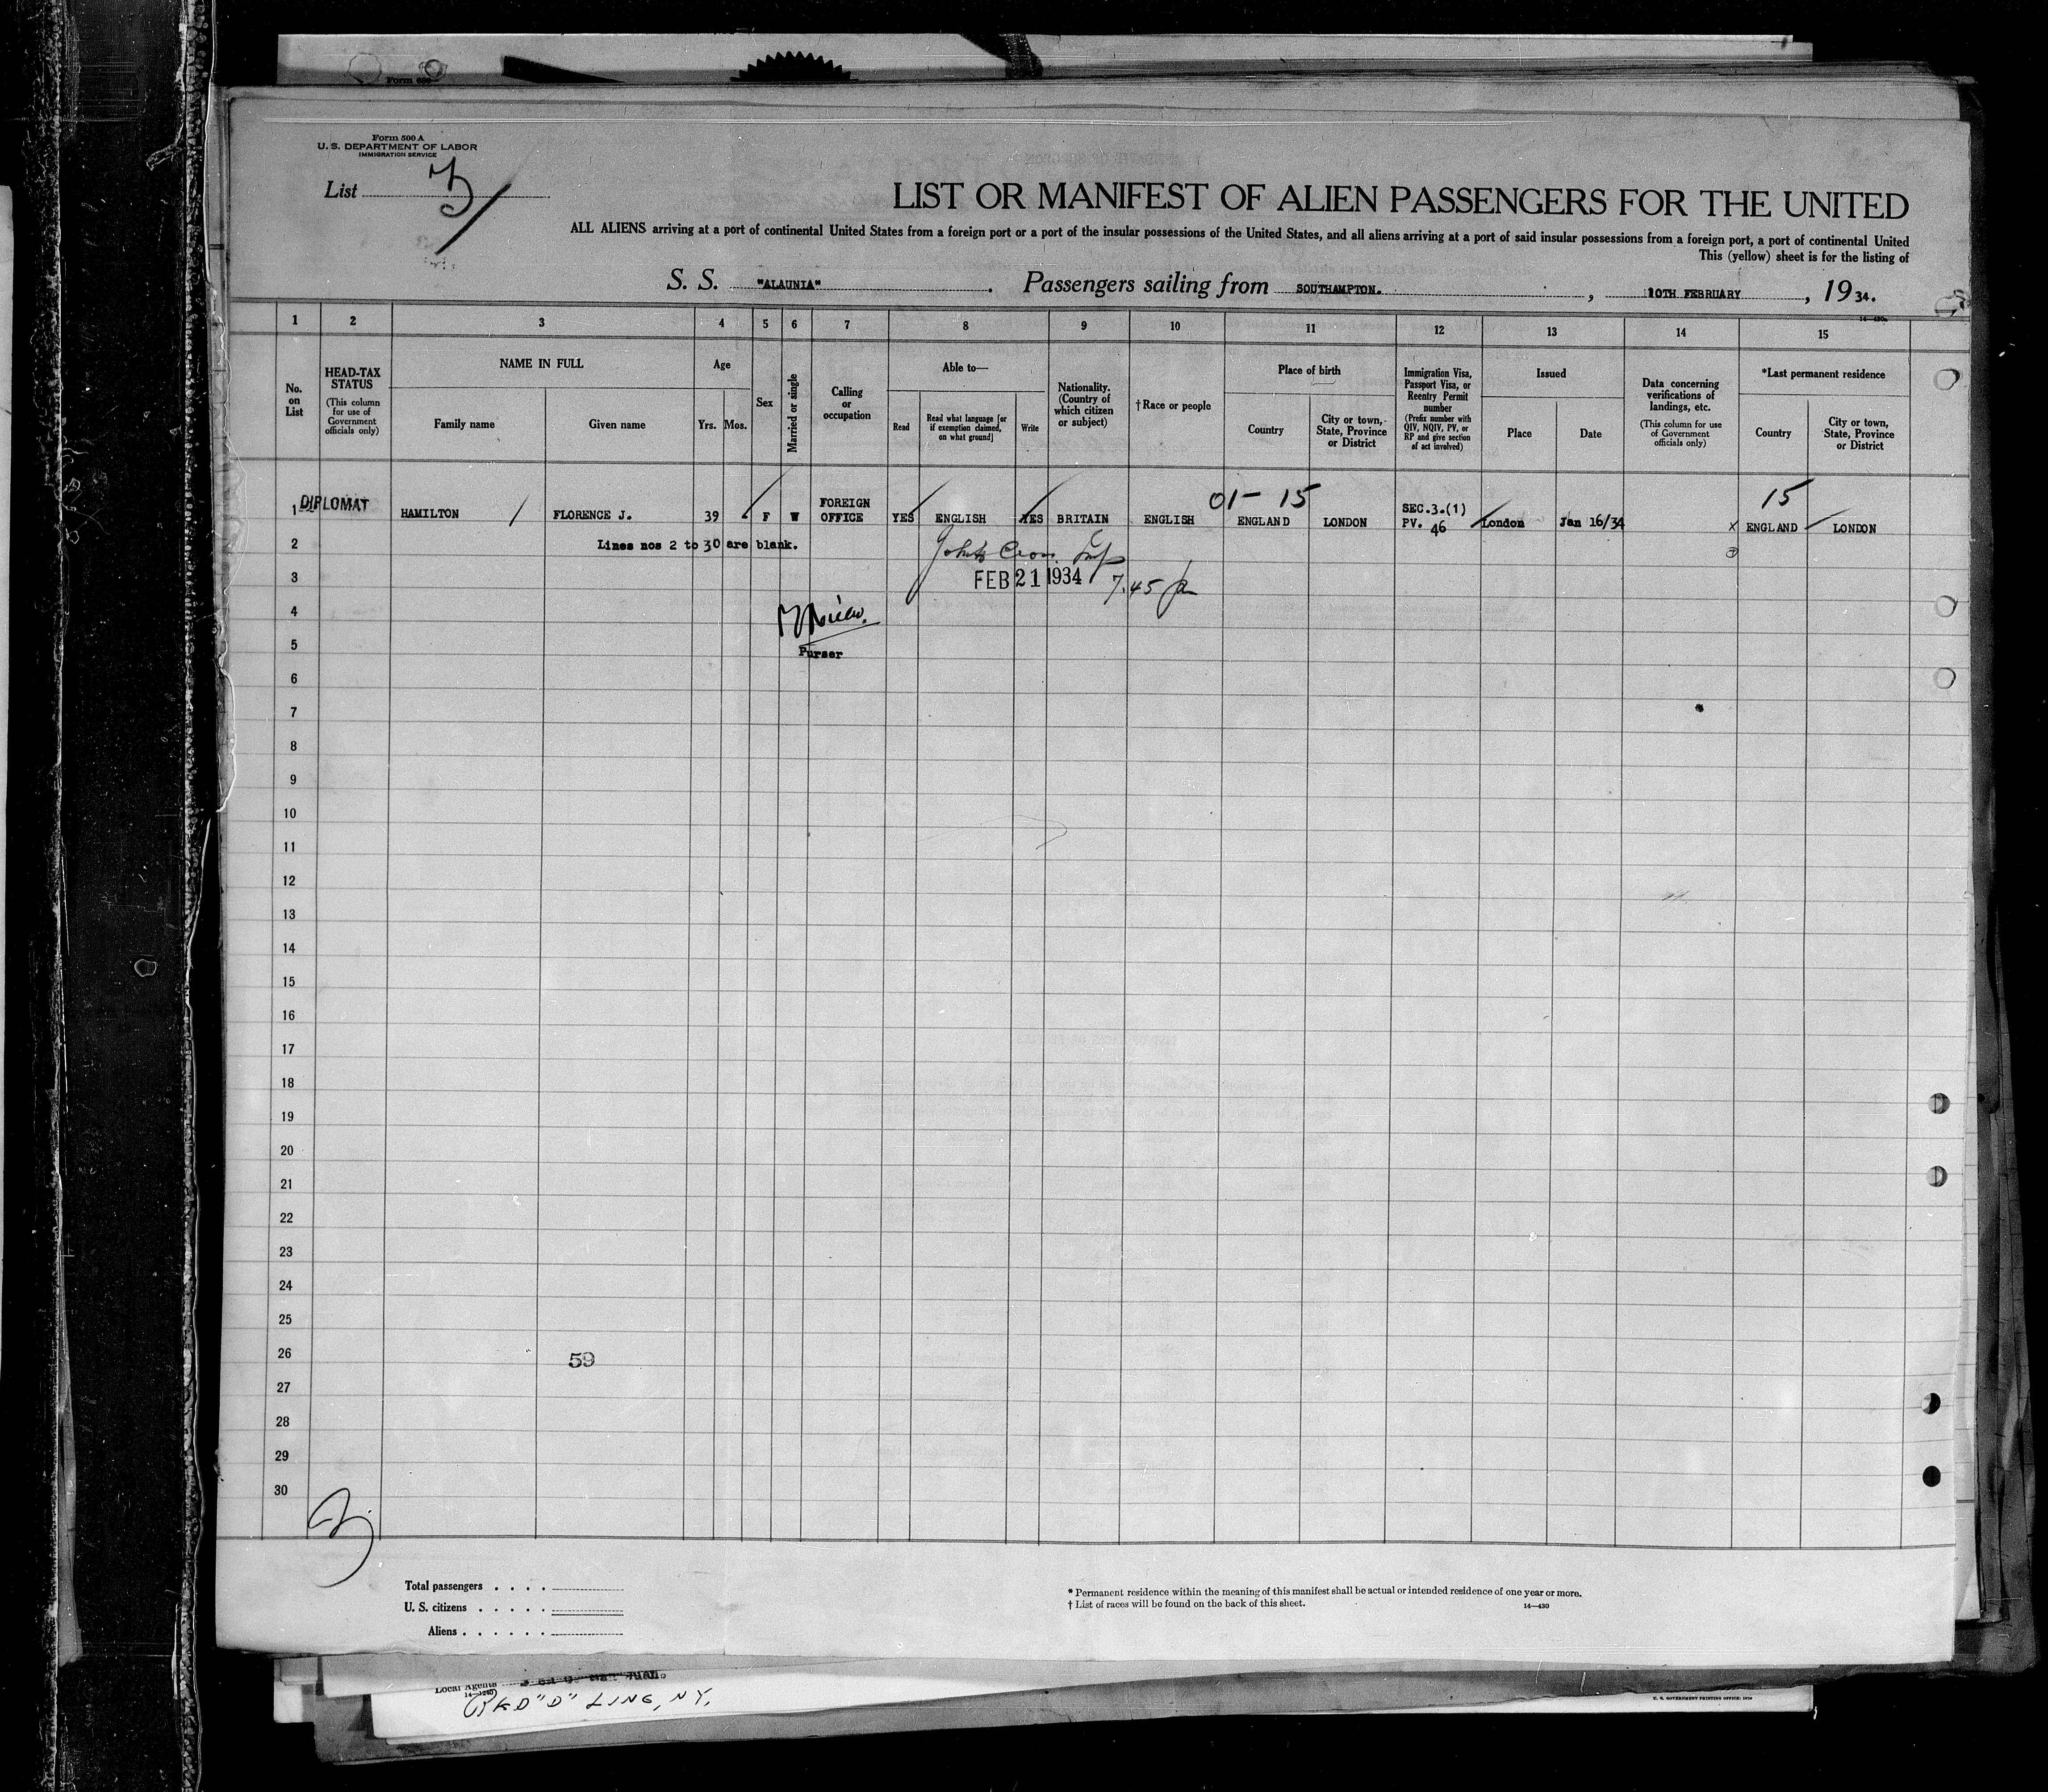 Form 500 A
U. S. DEPARTMENT OF LABOR
IMMIGRATION SERVICE
List 3
LIST OR MANIFEST OF ALIEN PASSENGERS FOR THE UNITED
ALL ALIENS arriving at a port of continental United States from a foreign port or a port of the insular possessions of the United States, and all aliens arriving at a port of said insular possessions from a foreign port, a port of continental United
This (yellow) sheet is for the listing of
S. S. "ALAUNIA" . Passengers sailing from SOUTHAMPTON. , 10TH FEBRUARY , 1934.
14—430
1 2 3 4 5 6 7 8 9 10 11 12 13 14 15
No. on List
HEAD-TAX STATUS (This column for use of Government officials only)
NAME IN FULL
Family name
Given name
Age
Yrs. Mos.
Sex
Married or single
Calling or occupation
Able to—
Read
Read what language [or if exemption claimed, on what ground]
Write
Nationality. (Country of which citizen or subject)
† Race or people
Place of birth
Country
City or town, State, Province or District
Immigration Visa, Passport Visa, or Reentry Permit number (Prefix number with QIV, NQIV, PV, or RP and give section of act involved)
Issued
Place
Date
Data concerning verifications of landings, etc. (This column for use of Government officials only)
*Last permanent residence
Country
City or town, State, Province or District
01- 15 15
1 DIPLOMAT HAMILTON FLORENCE J. 39 F W FOREIGN OFFICE YES ENGLISH YES BRITAIN ENGLISH ENGLAND LONDON SEC.3.(1) PV. 46 London Jan 16/34 x ENGLAND LONDON
2 Lines nos 2 to 30 are blank.
3 FEB 21 1934 7.45
4
5 Purser
6
7
8
9
10
11
12
13
14
15
16
17
18
19
20
21
22
23
24
25
26 59
27
28
29
30
Total passengers . . . .
U. S. citizens . . . . .
Aliens . . . . . .
* Permanent residence within the meaning of this manifest shall be actual or intended residence of one year or more.
† List of races will be found on the back of this sheet.
14—430
Local Agents
LINE, NY.
U. S. GOVERNMENT PRINTING OFFICE: